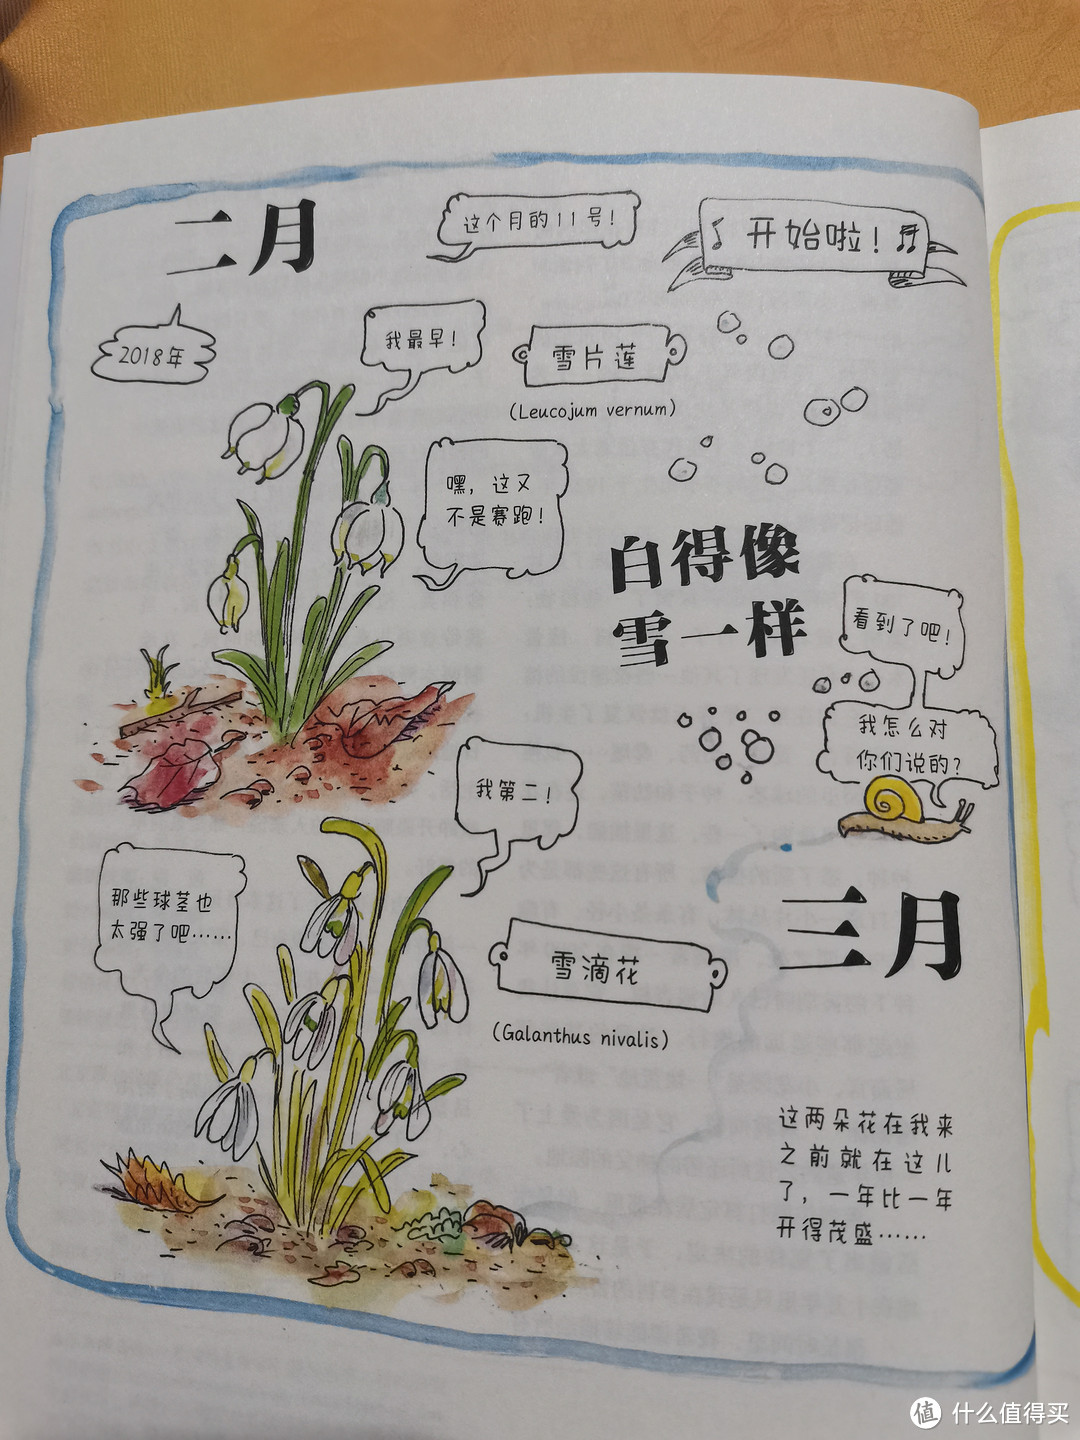 二月
这个月的11号！
开始啦！
2018年
我最早！
雪片莲
(Leucojum vernum)
嘿，这又
不是赛跑！
白得像
雪一样
看到了吧！
我怎么对
你们说的？
我第二！
那些球茎也
太强了吧……
雪滴花
(Galanthus nivalis)
三月
这两朵花在我来
之前就在这儿
了，一年比一年
开得茂盛……
值 什么值得买